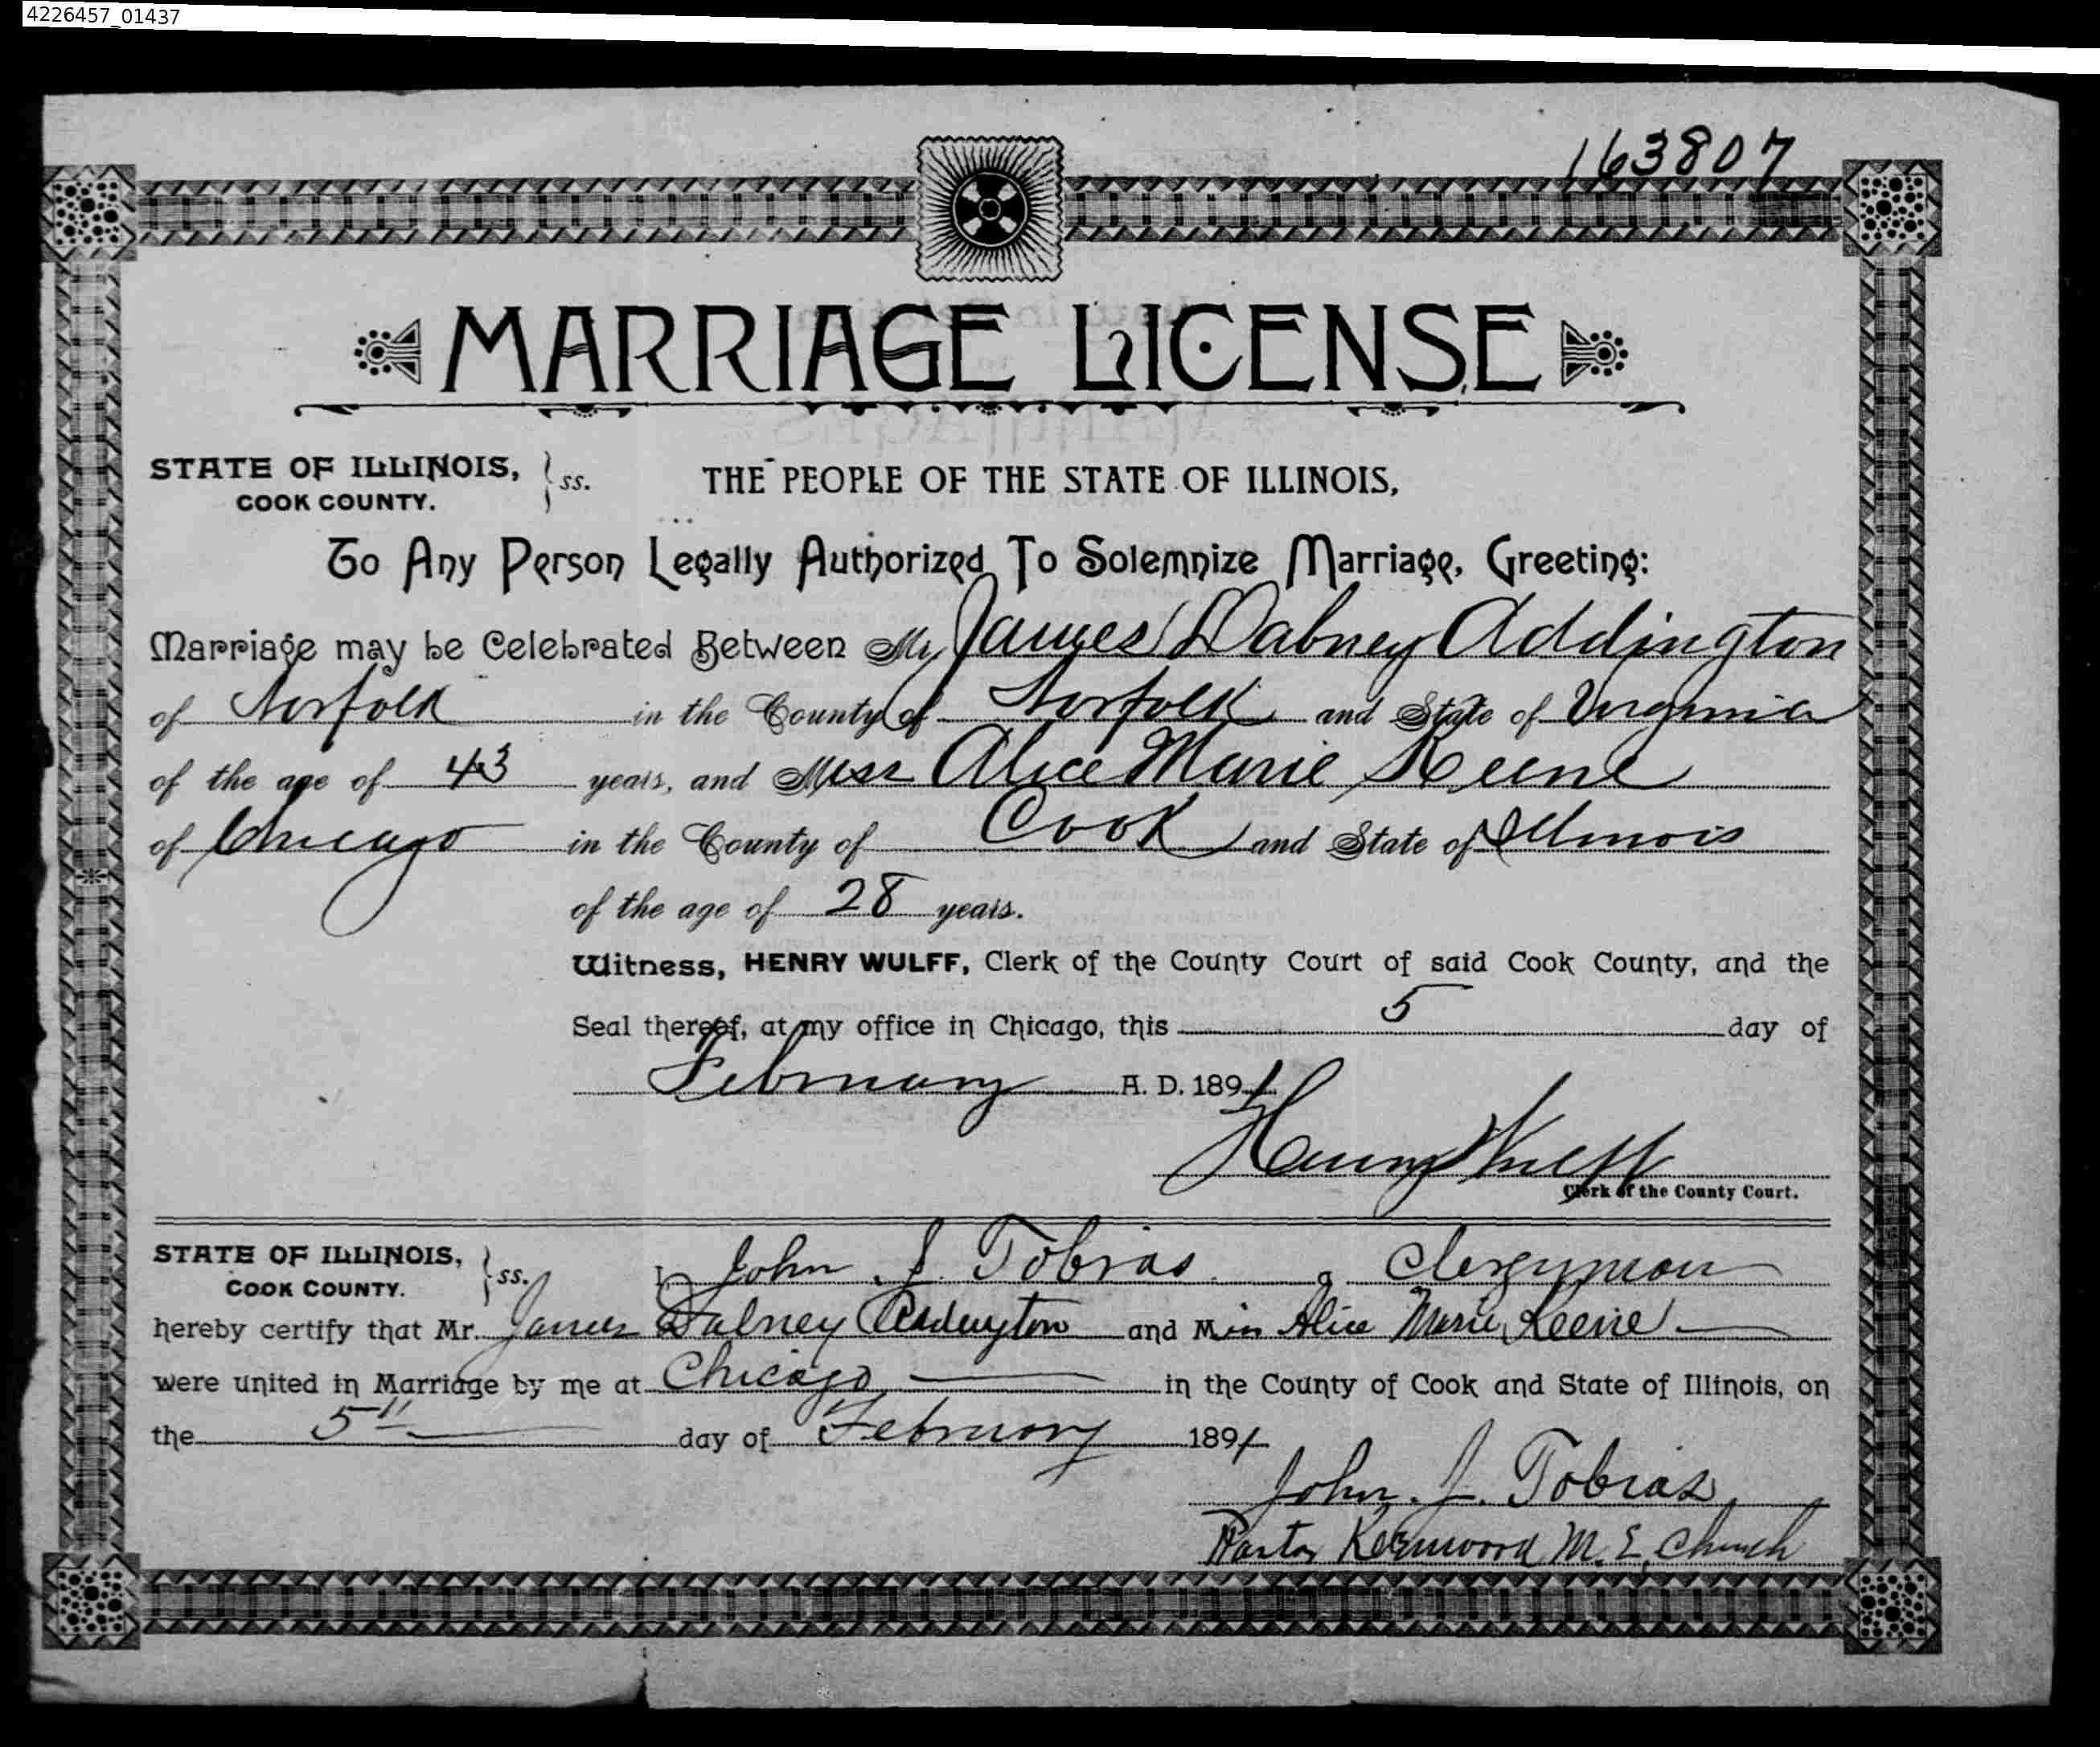 4226457_01437
163807
MARRIAGE LICENSE
STATE OF ILLINOIS, } ss. THE PEOPLE OF THE STATE OF ILLINOIS,
COOK COUNTY.
To Any Person Legally Authorized To Solemnize Marriage, Greeting:
Marriage may be Celebrated Between Mr James Dabney Addington
of Norfolk in the County of Norfolk and State of Virginia
of the age of 43 years, and Miss Alice Marie Keene
of Chicago in the County of Cook and State of Illinois
of the age of 28 years.
Witness, HENRY WULFF, Clerk of the County Court of said Cook County, and the
Seal thereof, at my office in Chicago, this 5 day of
February A. D. 1891
Henry Wulff
Clerk of the County Court.
STATE OF ILLINOIS, } ss. I, John J. Tobias a Clergyman
COOK COUNTY.
hereby certify that Mr. James Dabney Addington and Miss Alice Marie Keene
were united in Marriage by me at Chicago in the County of Cook and State of Illinois, on
the 5" day of February 1891
John J. Tobias,
Pastor Kenwood M. E. Church